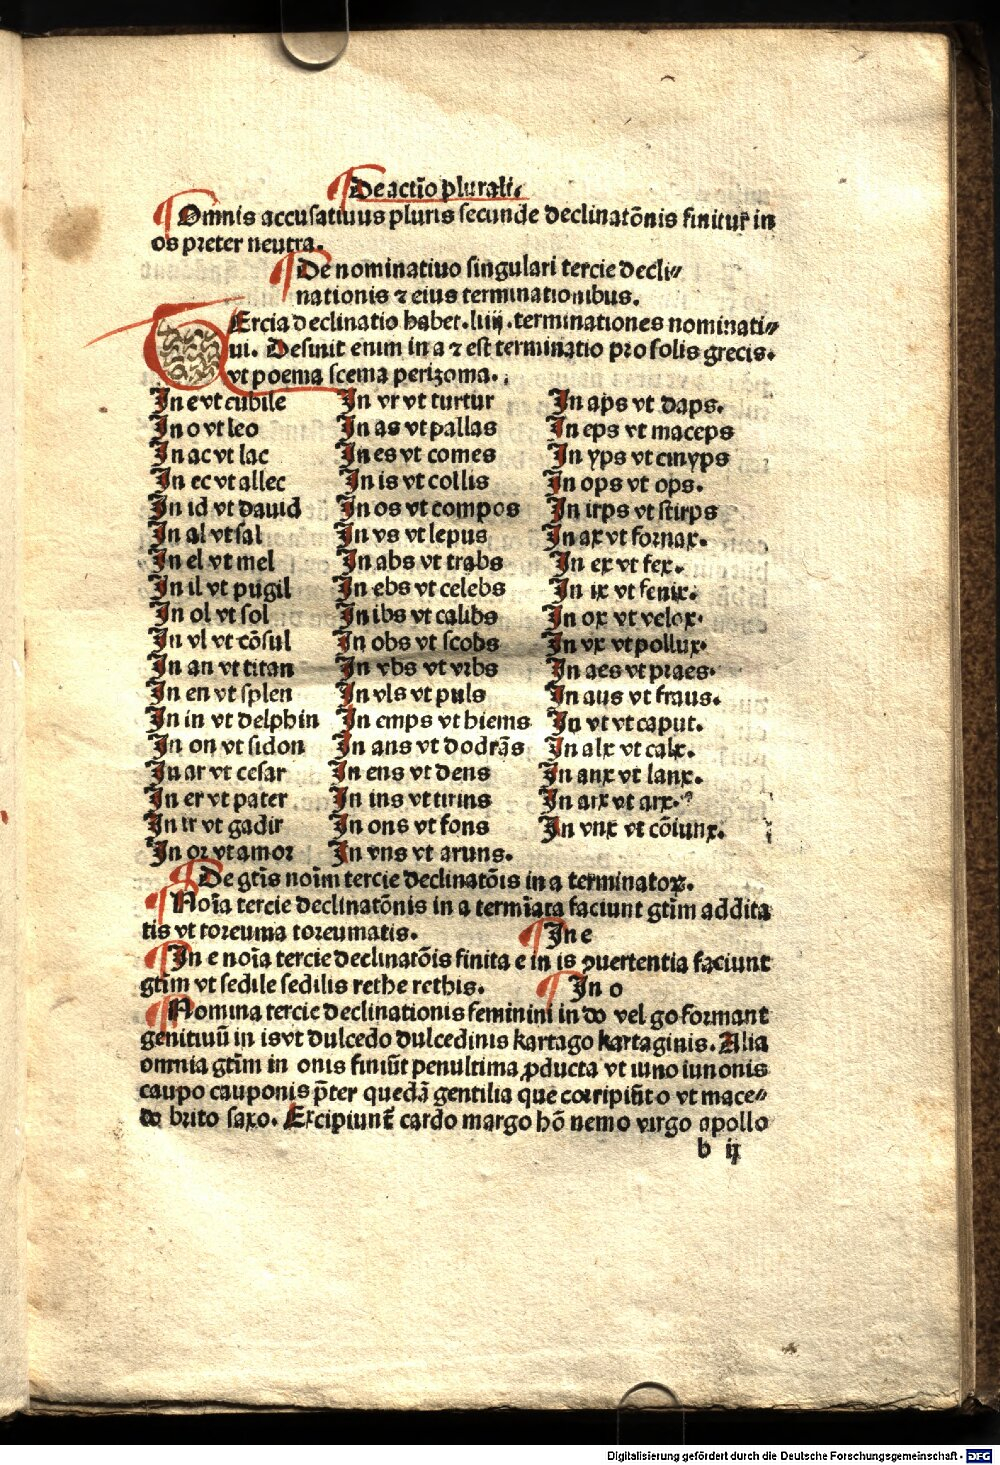 De actio plurali.
Omnis accusatiuus pluris secunde declinatōnis finitur in
os preter neutra.
De nominatiuo singulari tercie decli⸗
nationis ⁊ eius terminationibus.
Tercia declinatio habet .liiij. terminationes nominati⸗
ui. Desinit enim in a ⁊ est terminatio pro solis grecis.
vt poema scema perizoma.
In e vt cubile
In o vt leo
In ac vt lac
In ec vt allec
In id vt dauid
In al vt sal
In el vt mel
In il vt pugil
In ol vt sol
In vl vt cōsul
In an vt titan
In en vt splen
In in vt delphin
In on vt sidon
In ar vt cesar
In er vt pater
In ir vt gadir
In or vt amor
In vr vt turtur
In as vt pallas
In es vt comes
In is vt collis
In os vt compos
In vs vt lepus
In abs vt trabs
In ebs vt celebs
In ibs vt calibs
In obs vt scobs
In vbs vt vrbs
In vls vt puls
In emps vt hiems
In ans vt dodrās
In ens vt dens
In ins vt tirins
In ons vt fons
In vns vt aruns.
In aps vt daps.
In eps vt maceps
In yps vt cinyps
In ops vt ops.
In irps vt stirps
In ax vt fornax.
In ex vt fex.
In ix vt fenix.
In ox vt velox.
In vx vt pollux.
In aes vt praes.
In aus vt fraus.
In vt vt caput.
In alx vt calx.
In anx vt lanx.
In arx vt arx.
In vnx vt cōiunx.
De gtīs noīm tercie declinatōis in a terminatoꝝ.
Noīa tercie declinatōnis in a termīata faciunt gtīm addita
tis vt toreuma toreumatis.
In e
In e noīa tercie declinatōis finita e in is ꝯuertentia faciunt
gtīm vt sedile sedilis rethe rethis.
In o
Nomina tercie declinationis feminini in do vel go formant
genitiuū in is vt dulcedo dulcedinis kartago kartaginis. Alia
omnia gtīm in onis finiūt penultima ꝓducta vt iuno iunonis
caupo cauponis p̄ter quedā gentilia que corripiūt o vt mace⸗
do brito saxo. Excipiunt̄ cardo margo hō nemo virgo apollo
b ij
Digitalisierung gefördert durch die Deutsche Forschungsgemeinschaft - DFG